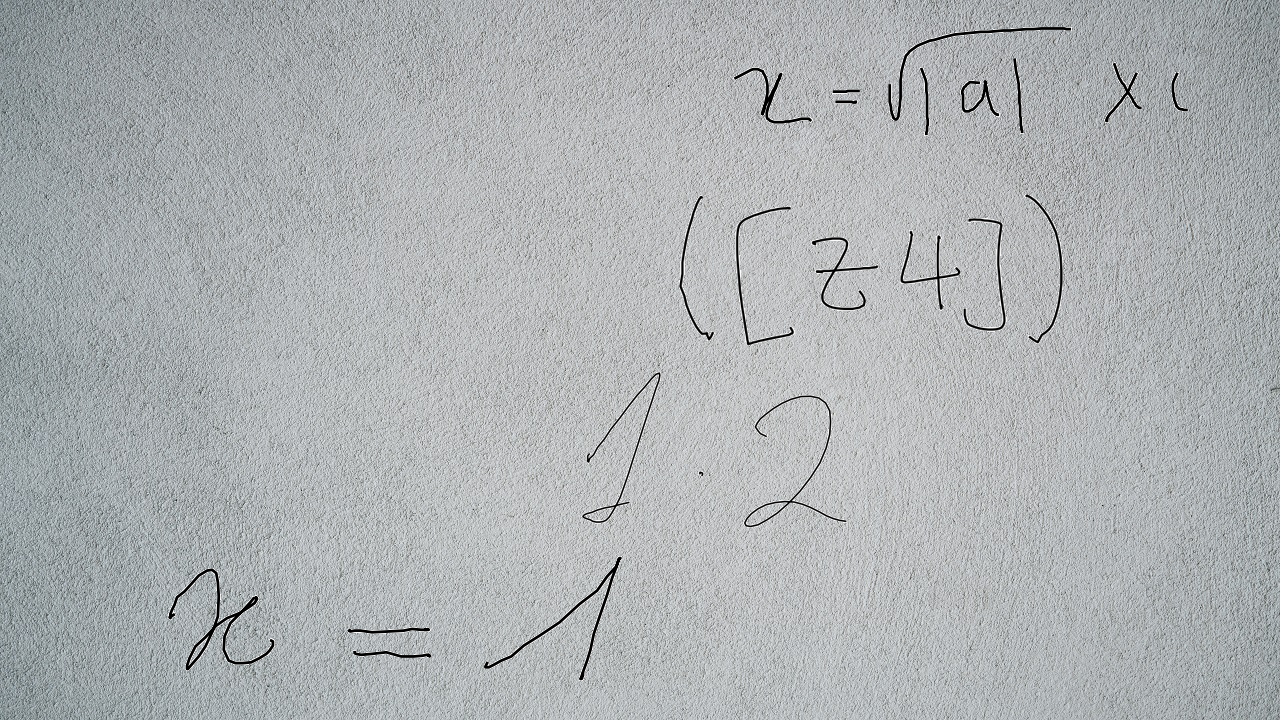 x = √|a| × i
([z4])
1 · 2
x = 1